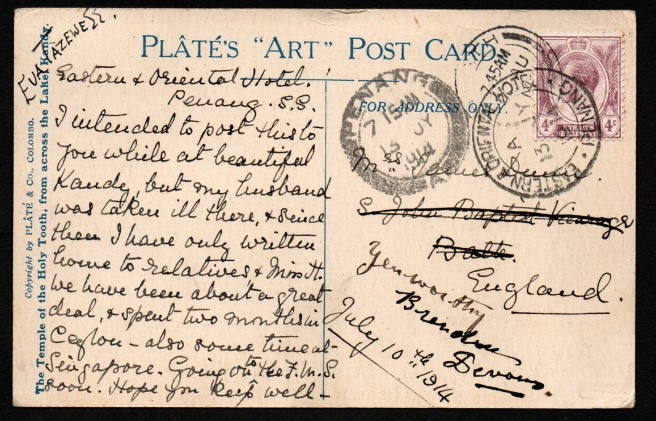 PLÂTÉ'S "ART" POST CARD.
EVA TAZEWELL
Eastern & Oriental Hotel.
Penang. S.S.
I intended to post this to
you while at beautiful
Kandy, but my husband
was taken ill there, & since
then I have only written
home to relatives & Miss H.
We have been about a great
deal, & spent two months in
Ceylon - also some time at
Singapore. Going on to the F.M.S.
soon. Hope you keep well -
FOR ADDRESS ONLY
S. John Baptist Vicarage
Bath.
England.
Yenworthy
Brendon
Devons.
July 10th 1914
PENANG
7 15 AM
13 JY
1914
EASTERN & ORIENTAL HOTEL
PENANG
7.45 AM
13 JY
4c
STRAITS
4c
Copyright by PLÂTÉ & Co., COLOMBO.
The Temple of the Holy Tooth, from across the Lake, Kandy.